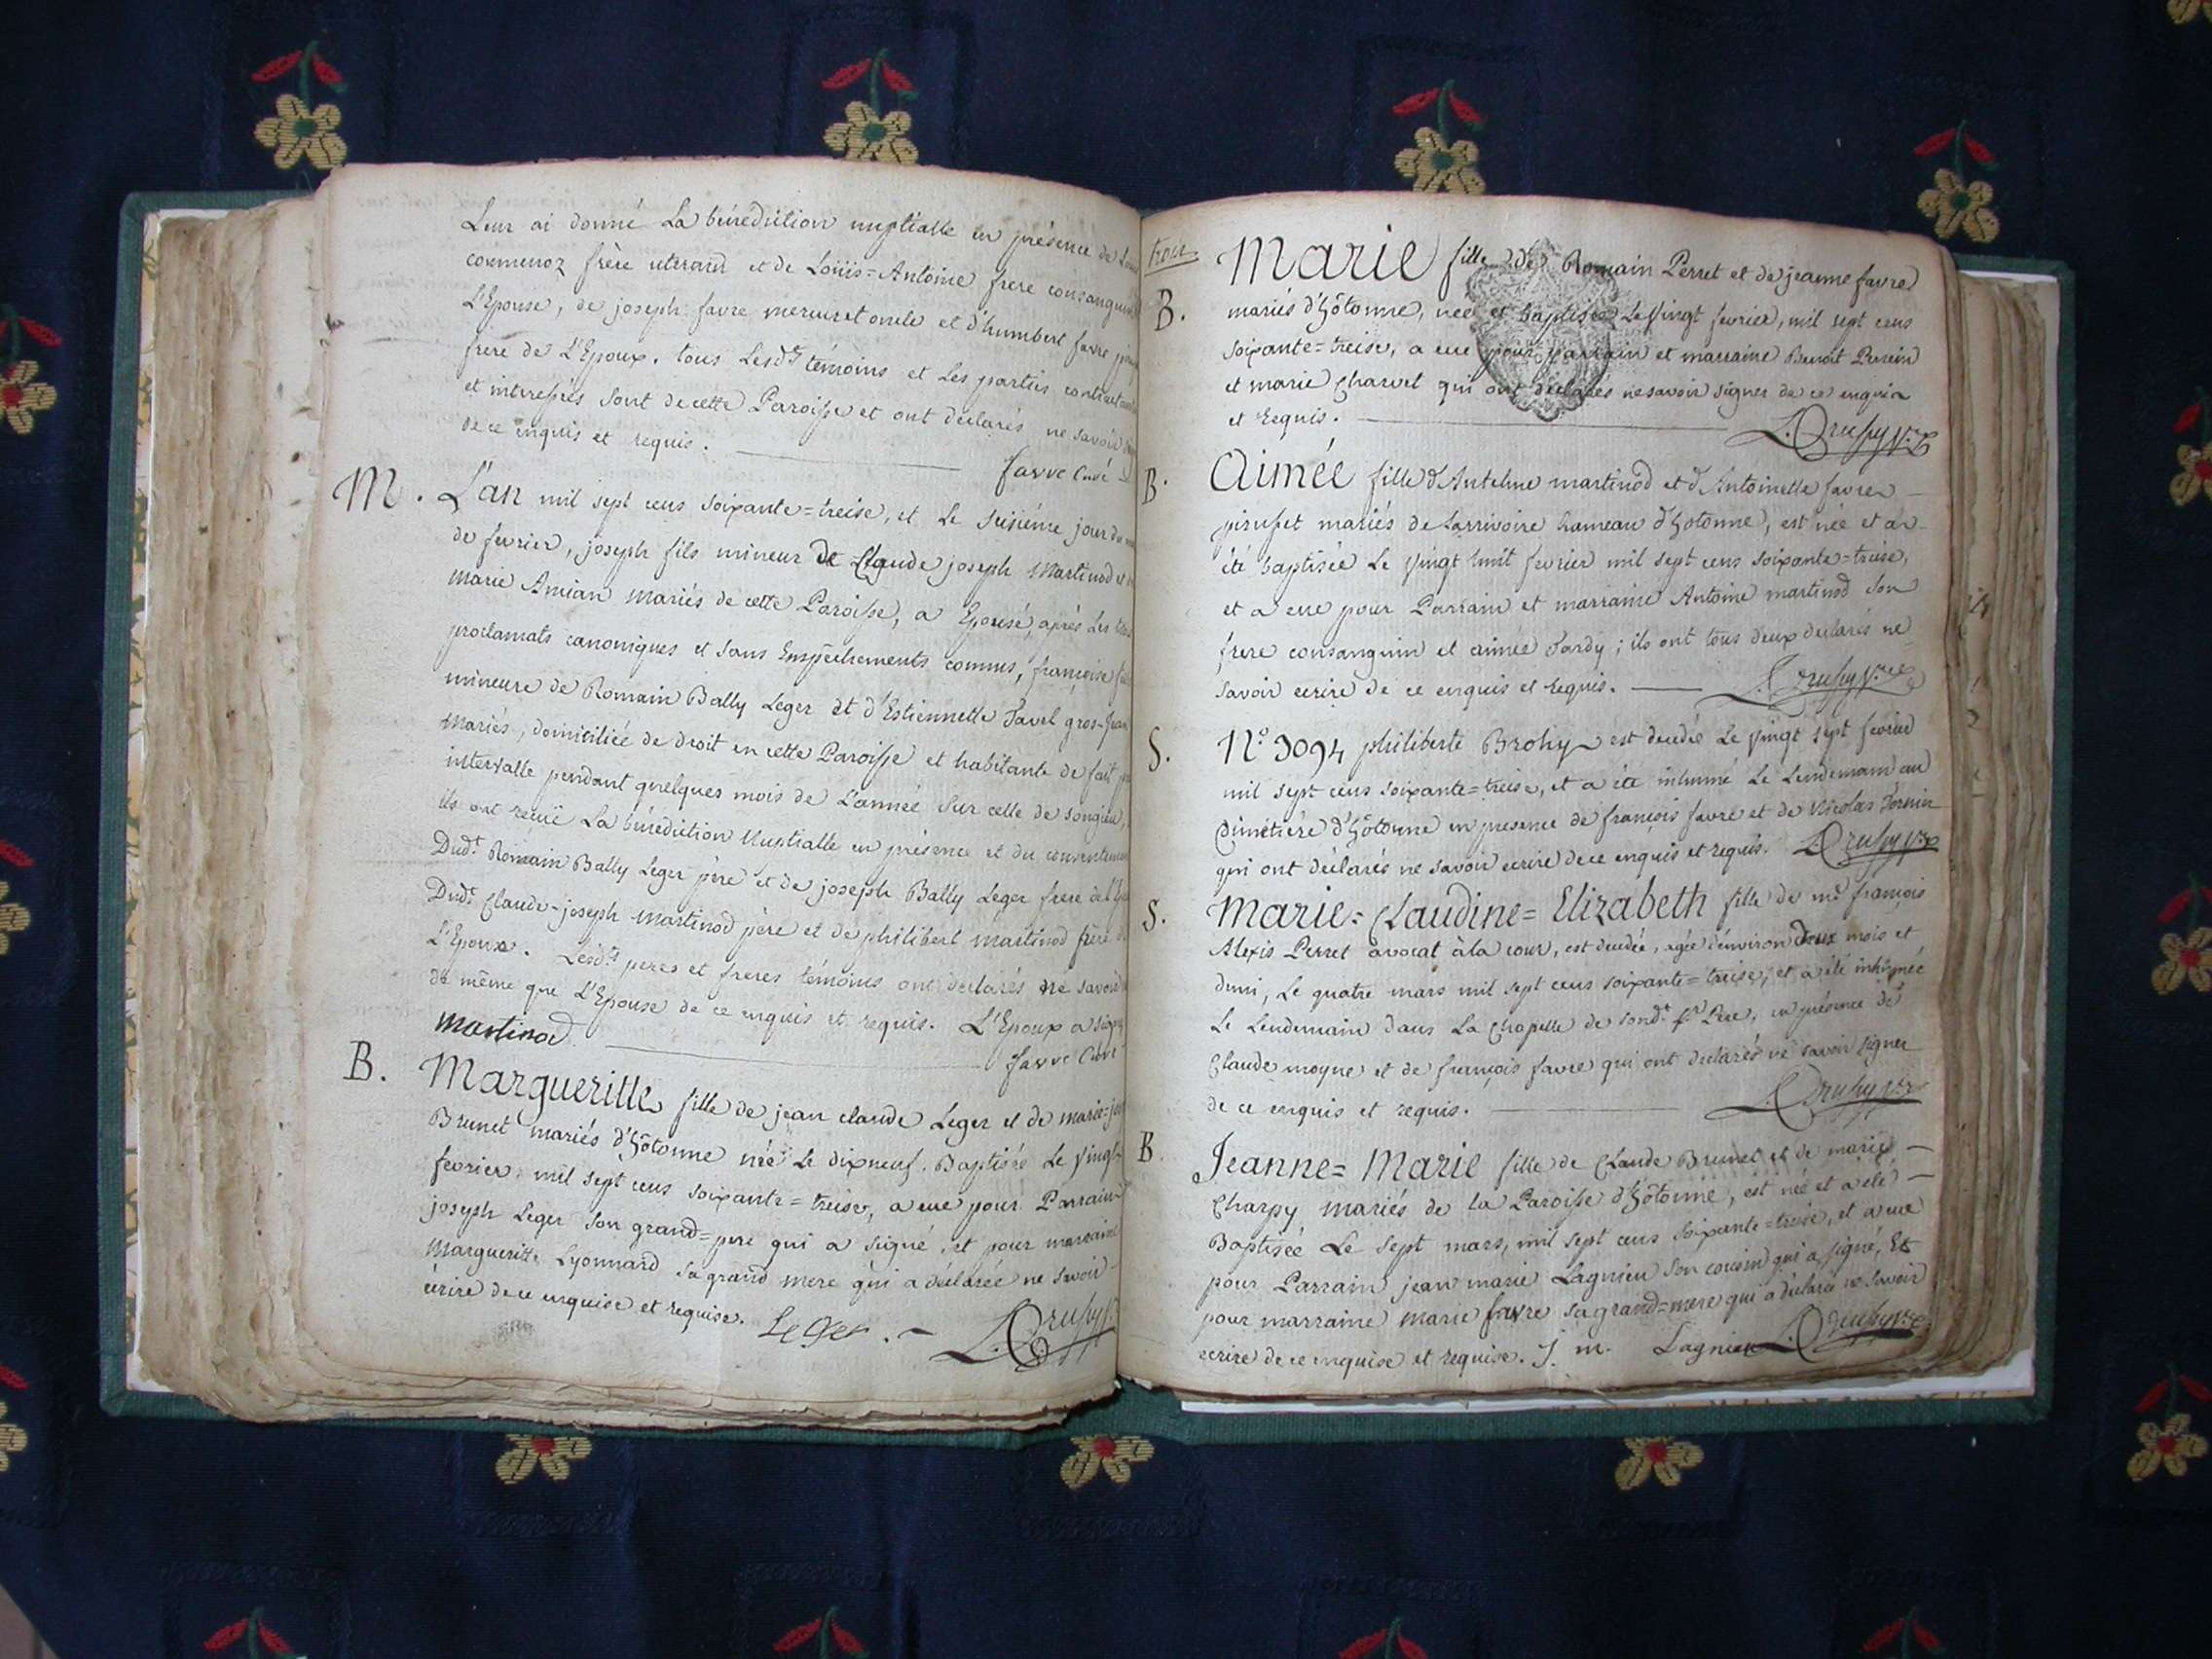 Leur ai donné La bénédiction nuptialle en présence de
commenoz frère uterain et de Loüis=Antoine frere consanguin
L'Epouse, de joseph favre mercuret oncle et d'humbert favre
frere de L'Epoux. tous Lesdts témoins et Les parties contractantes
et interessées sont de cette Paroisse et ont déclarés ne savoir
de ce enquis et requis.
favre Curé
M. L'an mil sept cens soixante=treise, et Le seisiéme jour du
de fevrier, joseph fils mineur de Claude joseph Martinod et
marie Amian mariés de cette Paroisse, a Epousé, après Les
proclamats canoniques et sans Empêchements connus, françoise
mineure de Romain Bally Leger et d'Estiennette Favel gros-jean
mariés, domiciliée de droit en cette Paroisse et habitante de fait
intervalle pendant quelques mois de L'année sur celle de songieu,
ils ont reçüe La bénédiction Nuptialle en présence et du consentement
Dudt Romain Bally Leger père et de joseph Bally Leger frere
Dudt Claude-joseph martinod père et de philibert martinod frère
L'Epoux. Lesdts peres et freres témoins ont déclarés ne savoir
de même que L'Epouse de ce enquis et requis. L'Epoux a signé
martinod
favre Curé
B. Margueritte fille de jean claude Leger et de marie=
Brunet mariés d'hôtonne née Le dixneuf, Baptisée Le vingt
fevrier mil sept cens soixante=treise, a eue pour Parrain
joseph Leger son grand=pere qui a signé, et pour marraine
Margueritte Lyonnard sa grand mere qui a déclarée ne savoir
écrire de ce enquise et requise. Leger.
B. Marie fille de Romain Perret et de jeanne favre
mariés d'hôtonne, née et baptisée Le vingt fevrier, mil sept cens
soixante=treise, a eue pour parrain et marraine Benoit Perrein
et marie Charvet qui ont déclarés ne savoir signer de ce enquis
et requis.
B. Aimée fille d'Anthelme martinod et d'Antoinette favre
mariés de Larrivoire hameau d'hotonne, est née et a
été baptisée Le vingt huit fevrier mil sept cens soixante=treise,
et a eue pour Parrain et marraine Antoine martinod son
frere consanguin et aimée Tardy; ils ont tous deux declarés ne
savoir ecrire de ce enquis et requis.
S. philiberte Brohy est decedée Le vingt sept fevrier
mil sept cens soixante=treise, et a été inhumé Le Lendemain au
Cimetière d'hôtonne en presence de françois favre et de Nicolas
qui ont déclarés ne savoir ecrire de ce enquis et requis.
S. Marie=Claudine=Elizabeth fille de me françois
Alexis Perret avocat à la cour, est decedée, agée d'environ deux mois et
demi, Le quatre mars mil sept cens soixante=treise, et a été inhumée
Le Lendemain dans La chapelle de sondt Pere, en présence de
Claude moyne et de françois favre qui ont déclarés ne savoir signer
de ce enquis et requis.
B Jeanne=Marie fille de Claude Brunet et de marie
Charpy mariés de la Paroisse d'hôtonne, est née et a été
Baptisée Le sept mars, mil sept cens soixante=treise, et a eue
pour Parrain jean marie Lagnieu son cousin qui a signé, Et
pour marraine marie favre sa grand=mere qui a déclarée ne savoir
ecrire de ce enquise et requise. J. m. Lagnieu